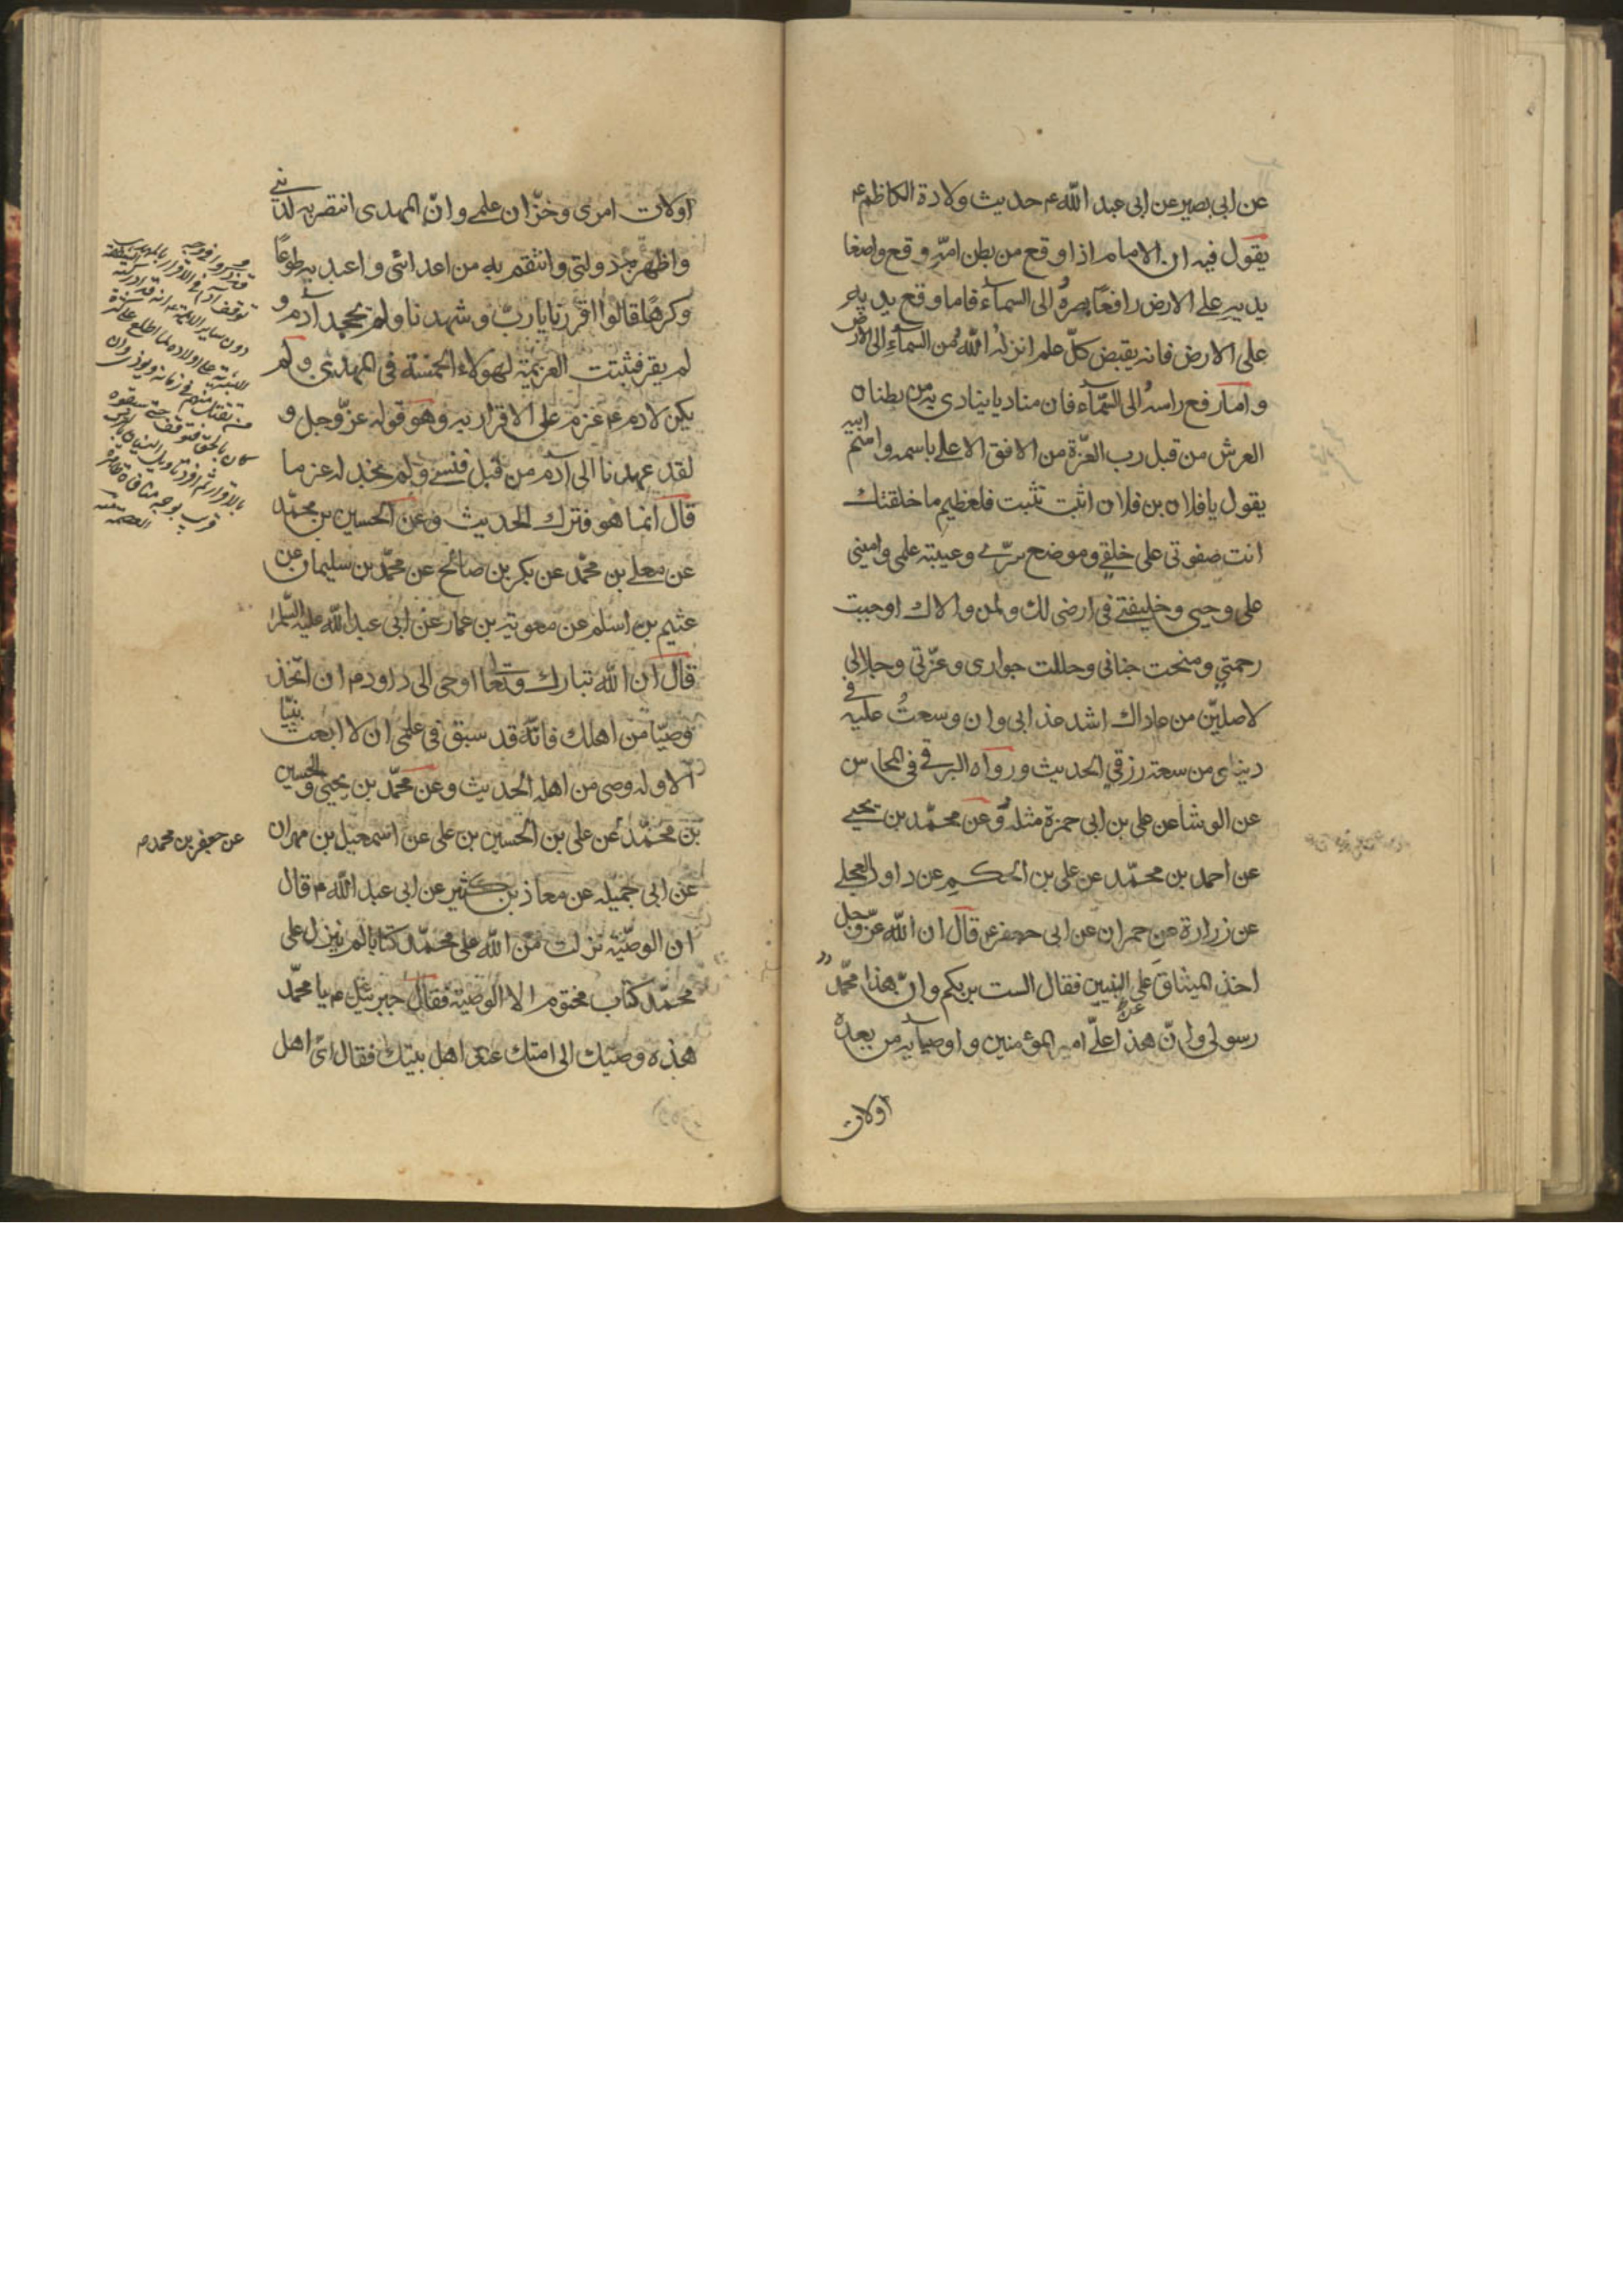 عن ابى بصير عن ابى عبد الله ع حديث ولادة الكاظم ع
يقول فيه ان الامام اذا وقع من بطن امّه وقع واضعا
يديه على الارض رافعًا بصره الى السمآء فاما وقع يديه
على الارض فانه يقبض كلّ علم انزله الله من السمآء الى الارض
و امّا رفع راسه الى السّمآء فان مناديا ينادى به من بطنان
العرش من قبل رب العزّة من الافق الاعلى باسمه واسم ابيه
يقول يا فلان بن فلان اثبت تثبت فلعظيم ما خلقتك
انت صفوتى على خلقى وموضع سرّى وعيبة علمى وامينى
على وحيى وخليفتى فى ارضى لك ولمن والاك اوجبت
رحمتى ومنحت جنانى وحللت جوارى وعزّتى وجلالى
لاصلينّ من عاداك اشد عذابى وان وسعتُ عليه فى
دنياى من سعة رزقى الحديث ورواه البرقى فى المحاسن
عن الوشا عن على بن ابى حمزة مثله وعن محمّد بن يحيى
عن احمد بن محمّد عن على بن الحكم عن داود العجلى
عن زرارة عن حمران عن ابى جعفر ع قال ان الله عزّ وجل
اخذ الميثاق على النبيين فقال الست بربكم وانّ هذا محمّد
رسولى وانّ هذا علىّ امير المؤمنين و اوصيآيه من بعده
اولات
اولات امرى وخزّان علمى وانّ المهدى انتصر به لدينى
واظهر به دولتى وانتقم به من اعدائى واعبد به طوعًا
وكرهًا قالوا اقررنا يا ربّ وشهدنا ولم يجحد آدم و
لم يقر فثبتت العزيمة لهولاء الخمسة فى المهدى ولم
يكن لادم ع عزم على الاقرار به وهو قوله عزّ وجل و
لقد عهدنا الى آدم من قبل فنسى ولم نجد له عزما
قال انما هو فترك الحديث وعن الحسين بن محمّد
عن معلى بن محمّد عن بكر بن صالح عن محمّد بن سليمان عن
عثيم بن اسلم عن معوية بن عمار عن ابى عبد الله عليه السّلم
قال ان الله تبارك وتعا اوحى الى داود م ان اتّخذ
وصيّا من اهلك فانّه قد سبق فى علمى ان لا ابعث نبيّا
الا وله وصى من اهله الحديث وعن محمّد بن يحيى والحسين
بن محمّد عن على بن الحسين بن على عن اسمعيل بن مهران
عن ابى جميله عن معاذ بن كثير عن ابى عبد الله م قال
ان الوصيّة نزلت من الله على محمّد كتابا لم ينزل على
محمّد كتاب مختوم الا الوصية فقال جبرئيل ع يا محمّد
هذه وصيتك الى امتك عند اهل بيتك فقال اىّ اهل
دون ساير الائمة
عن جعفر بن محمد م